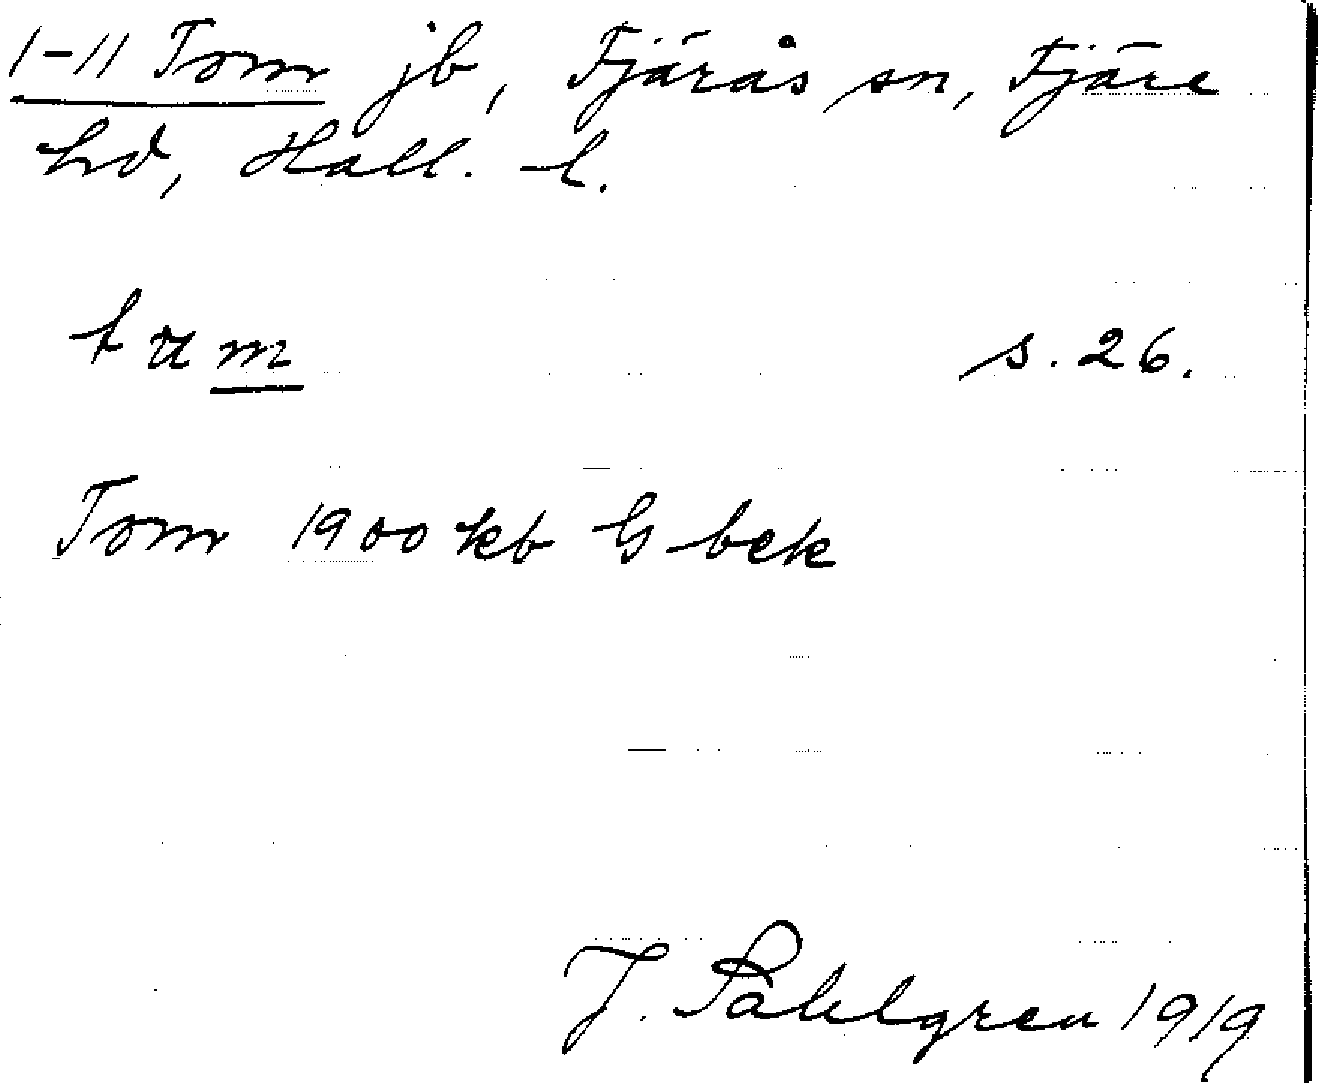 1-11 Tom jb, Fjärås sn, Fjäre
hd, Hall. l.
tum s. 26.
Tom 1900 kb G bek
J. Sahlgren 1919